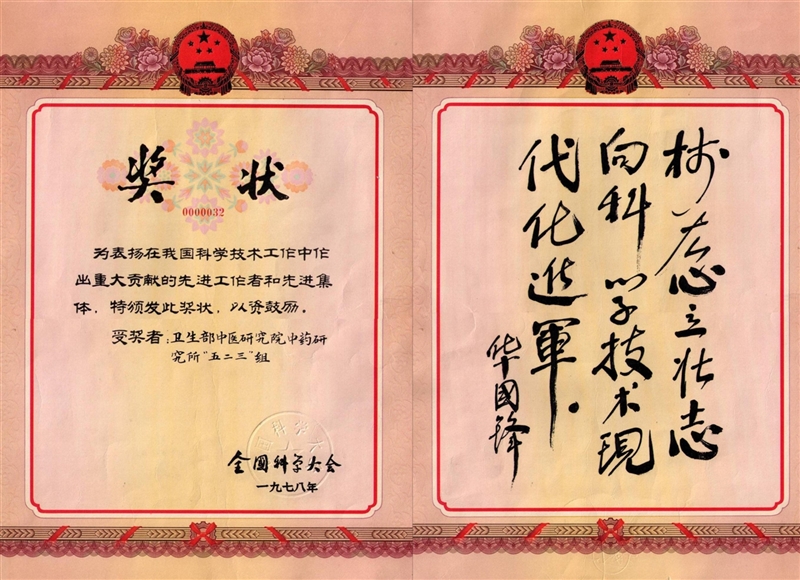 奖状
0000032
为表扬在我国科学技术工作中作
出重大贡献的先进工作者和先进集
体，特颁发此奖状，以资鼓励。
受奖者：卫生部中医研究院中药研
究所“五二三”组
全国科学大会
一九七八年
树雄心立壮志
向科学技术現
代化进軍。
华國锋